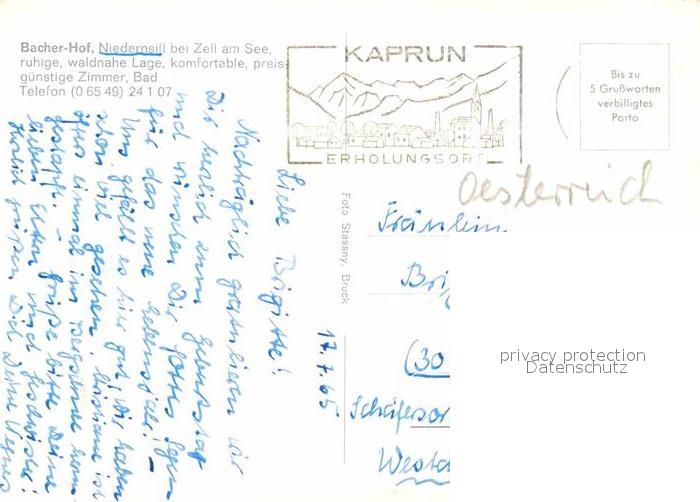 Bacher-Hof, Niedernsill bei Zell am See,
ruhige, waldnahe Lage, komfortable, preis-
günstige Zimmer, Bad
Telefon (0 65 49) 24 1 07
KAPRUN
ERHOLUNGSORT
Bis zu
5 Grußworten
verbilligtes
Porto
Oesterreich
Foto Stassny, Bruck
17.7.65
Liebe Brigitte!
Nachträglich gratulieren wir
Dir herzlich zum Geburtstag
und wünschen Dir Gottes Segen
für das neue Lebensjahr! –
Uns gefällt es hier gut, wir haben
schon viel gesehen. ist
öfter einmal im
– Grüße bitte Deine
lieben Eltern und
Herzlich grüßen Dich Deine
Fräulein
Bri
(30
Schäfersor
West
privacy protection
Datenschutz